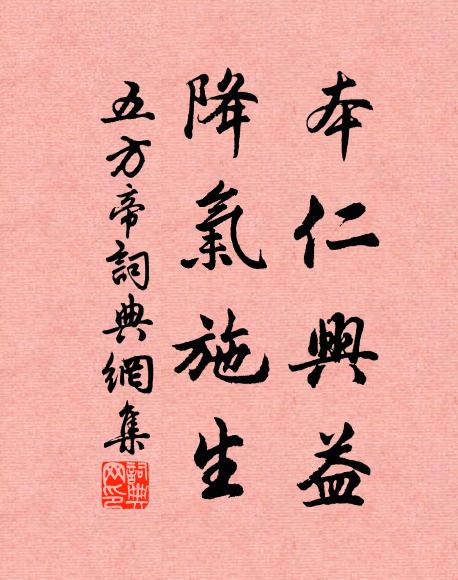 本仁興益
降氣施生
五方帝詞典網集
詞典
网印